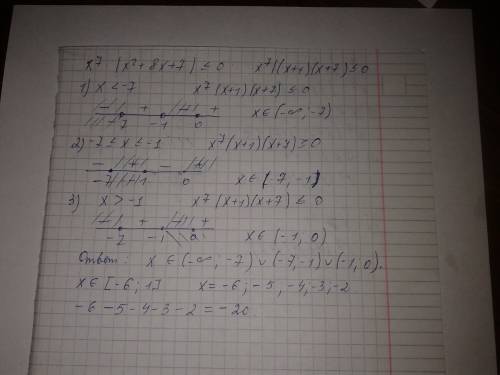 x⁷ |x²+8x+7| ≤ 0 x⁷|(x+1)(x+7)| ≤ 0
1) x < -7 x⁷(x+1)(x+7) ≤ 0
- + - +
-7 -1 0 x∈(-∞, -7)
2) -7 ≤ x ≤ -1 x⁷(x+1)(x+7) ≥ 0
-7 -1 0 x∈(-7, -1)
3) x > -1 x⁷(x+1)(x+7) ≤ 0
-7 -1 0 x∈(-1, 0)
Ответ: x ∈ (-∞, -7) ∪ (-7, -1) ∪ (-1, 0).
x∈[-6; 1] x = -6; -5, -4, -3, -2
-6 -5 -4 -3 -2 = -20